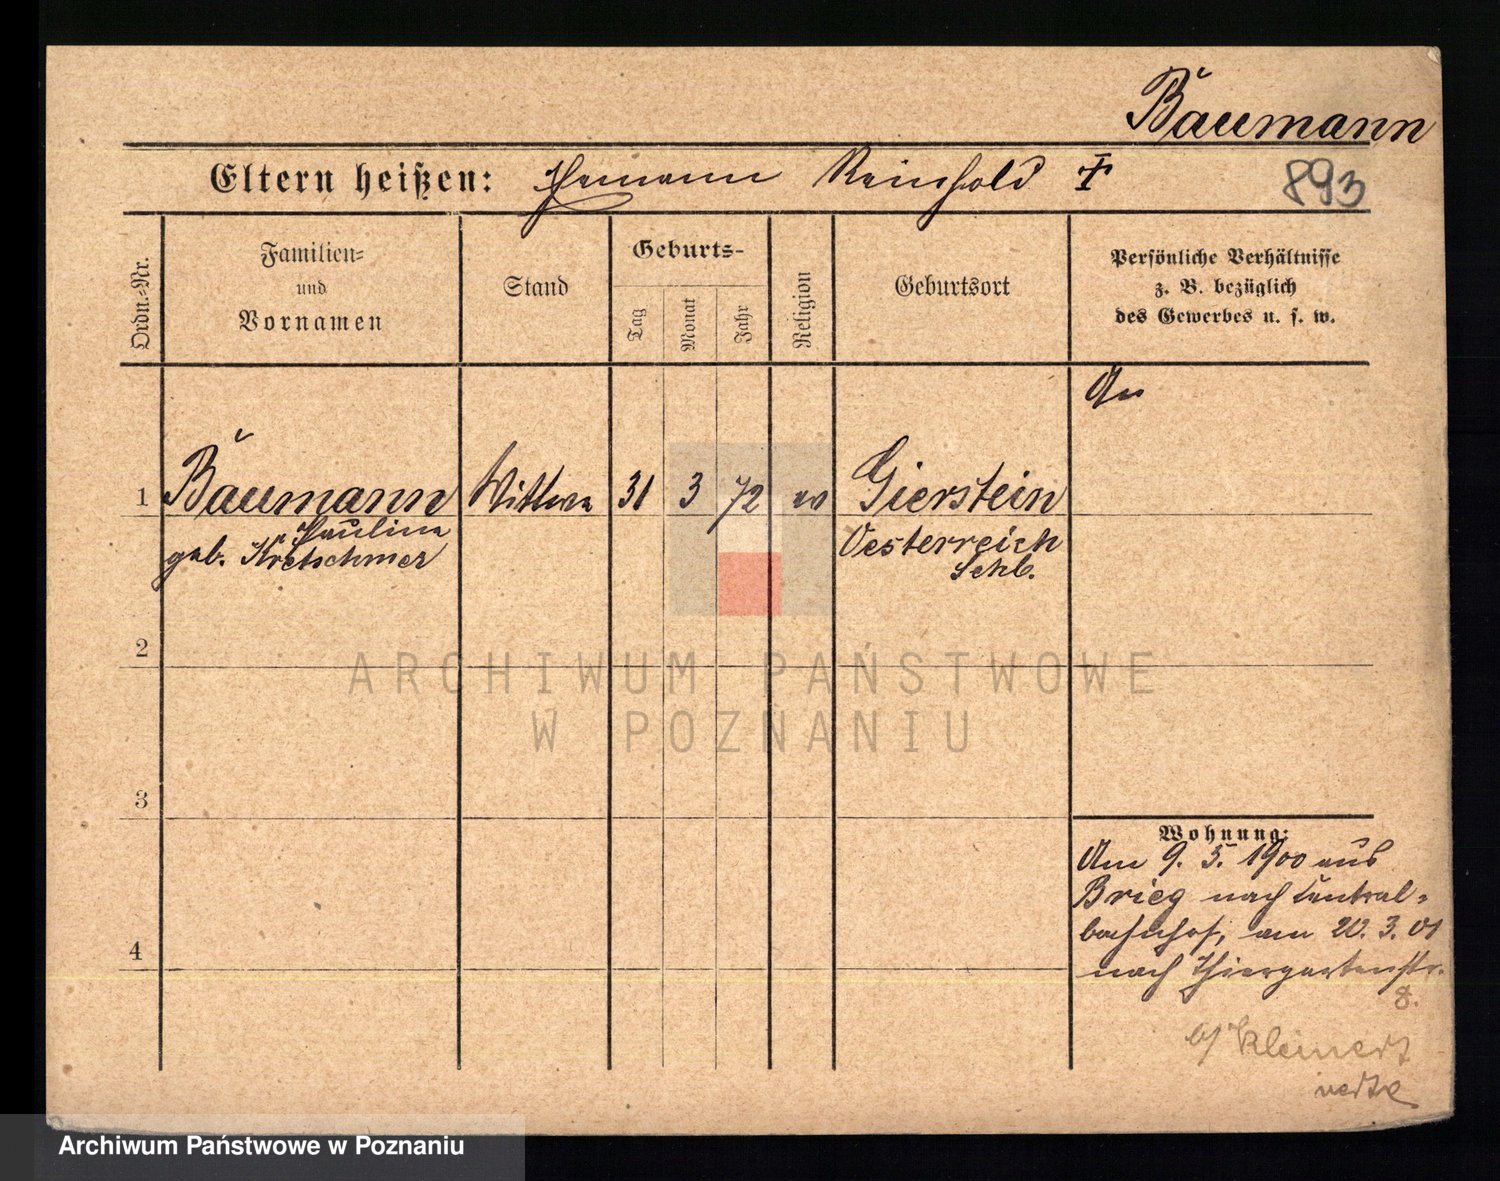 Baumann
Eltern heißen: Hermann Reinhold †
893
Ordn.-Nr.
Familien-
und
Vornamen
Stand
Geburts-
Tag
Monat
Jahr
Religion
Geburtsort
Persönliche Verhältnisse
z. B. bezüglich
des Gewerbes u. s. w.
1
Baumann
Pauline
geb. Kretschmer
Wittwe
31
3
72
ev
Gierstein
Oesterreich
Schl.
2
3
4
Wohnung:
Am 9. 5. 1900 aus
Brieg nach Central-
bahnhof, am 20. 3. 01
nach Thiergartenstr.
8.
b/ Kleinert
ARCHIWUM PAŃSTWOWE
W POZNANIU
Archiwum Państwowe w Poznaniu